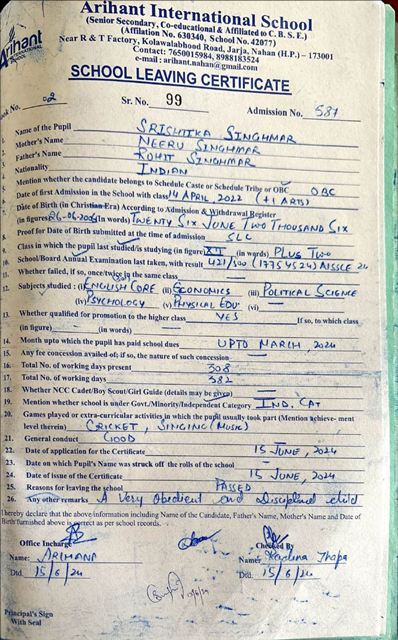 Arihant International School
(Senior Secondary, Co-educational & Affiliated to C. B. S. E.)
(Affiliation No. 630340, School No. 42077)
Near R & T Factory, Kolawalabhood Road, Jarja, Nahan (H.P.) – 173001
Contact: 7650015984, 8988183524
e-mail : arihant.nahan@gmail.com
Arihant
INTERNATIONAL SCHOOL
SCHOOL LEAVING CERTIFICATE
Book No. 02 Sr. No. 99 Admission No. 587
1. Name of the Pupil SRISHTIKA SINGHMAR
2. Mother's Name NEERU SINGHMAR
3. Father's Name ROHIT SINGHMAR
4. Nationality INDIAN
5. Mention whether the candidate belongs to Schedule Caste or Schedule Tribe or OBC OBC
6. Date of first Admission in the School with class 14 APRIL 2022 (+1 ARTS)
7. Date of Birth (in Christian Era) According to Admission & Withdrawal Register
(in figures) 26-06-2006 (In words) TWENTY SIX JUNE TWO THOUSAND SIX
8. Proof for Date of Birth submitted at the time of admission SLC
9. Class in which the pupil last studied/is studying (in figure) XII (in words) PLUS TWO
10. School/Board Annual Examination last taken, with result 421/500 (17754524) AISSCE 24
11. Whether failed, if so, once/twice in the same class —
12. Subjects studied : (i) ENGLISH CORE (ii) ECONOMICS (iii) POLITICAL SCIENCE
(iv) PSYCHOLOGY (v) PHYSICAL EDU (vi) —
13. Whether qualified for promotion to the higher class YES If so, to which class
(in figure) — (in words) —
14. Month upto which the pupil has paid school dues UPTO MARCH, 2024
15. Any fee concession availed of; if so, the nature of such concession —
16. Total No. of working days present 308
17. Total No. of working days 382
18. Whether NCC Cadet/Boy Scout/Girl Guide (details may be given) —
19. Mention whether school is under Govt./Minority/Independent Category IND. CAT
20. Games played or extra-curricular activities in which the pupil usually took part (Mention achieve- ment
level therein) CRICKET, SINGING (MUSIC)
21. General conduct GOOD
22. Date of application for the Certificate 15 JUNE, 2024
23. Date on which Pupil's Name was struck off the rolls of the school —
24. Date of issue of the Certificate 15 JUNE, 2024
25. Reasons for leaving the school PASSED
26. Any other remarks A Very Obedient and Disciplined child
I hereby declare that the above information including Name of the Candidate, Father's Name, Mother's Name and Date of
Birth furnished above is correct as per school records.
Office Incharge Checked By
Name: ARIHANT Name: Karuna Thapa
Dtd. 15/6/24 Dtd. 15/6/24
Principal's Sign
With Seal